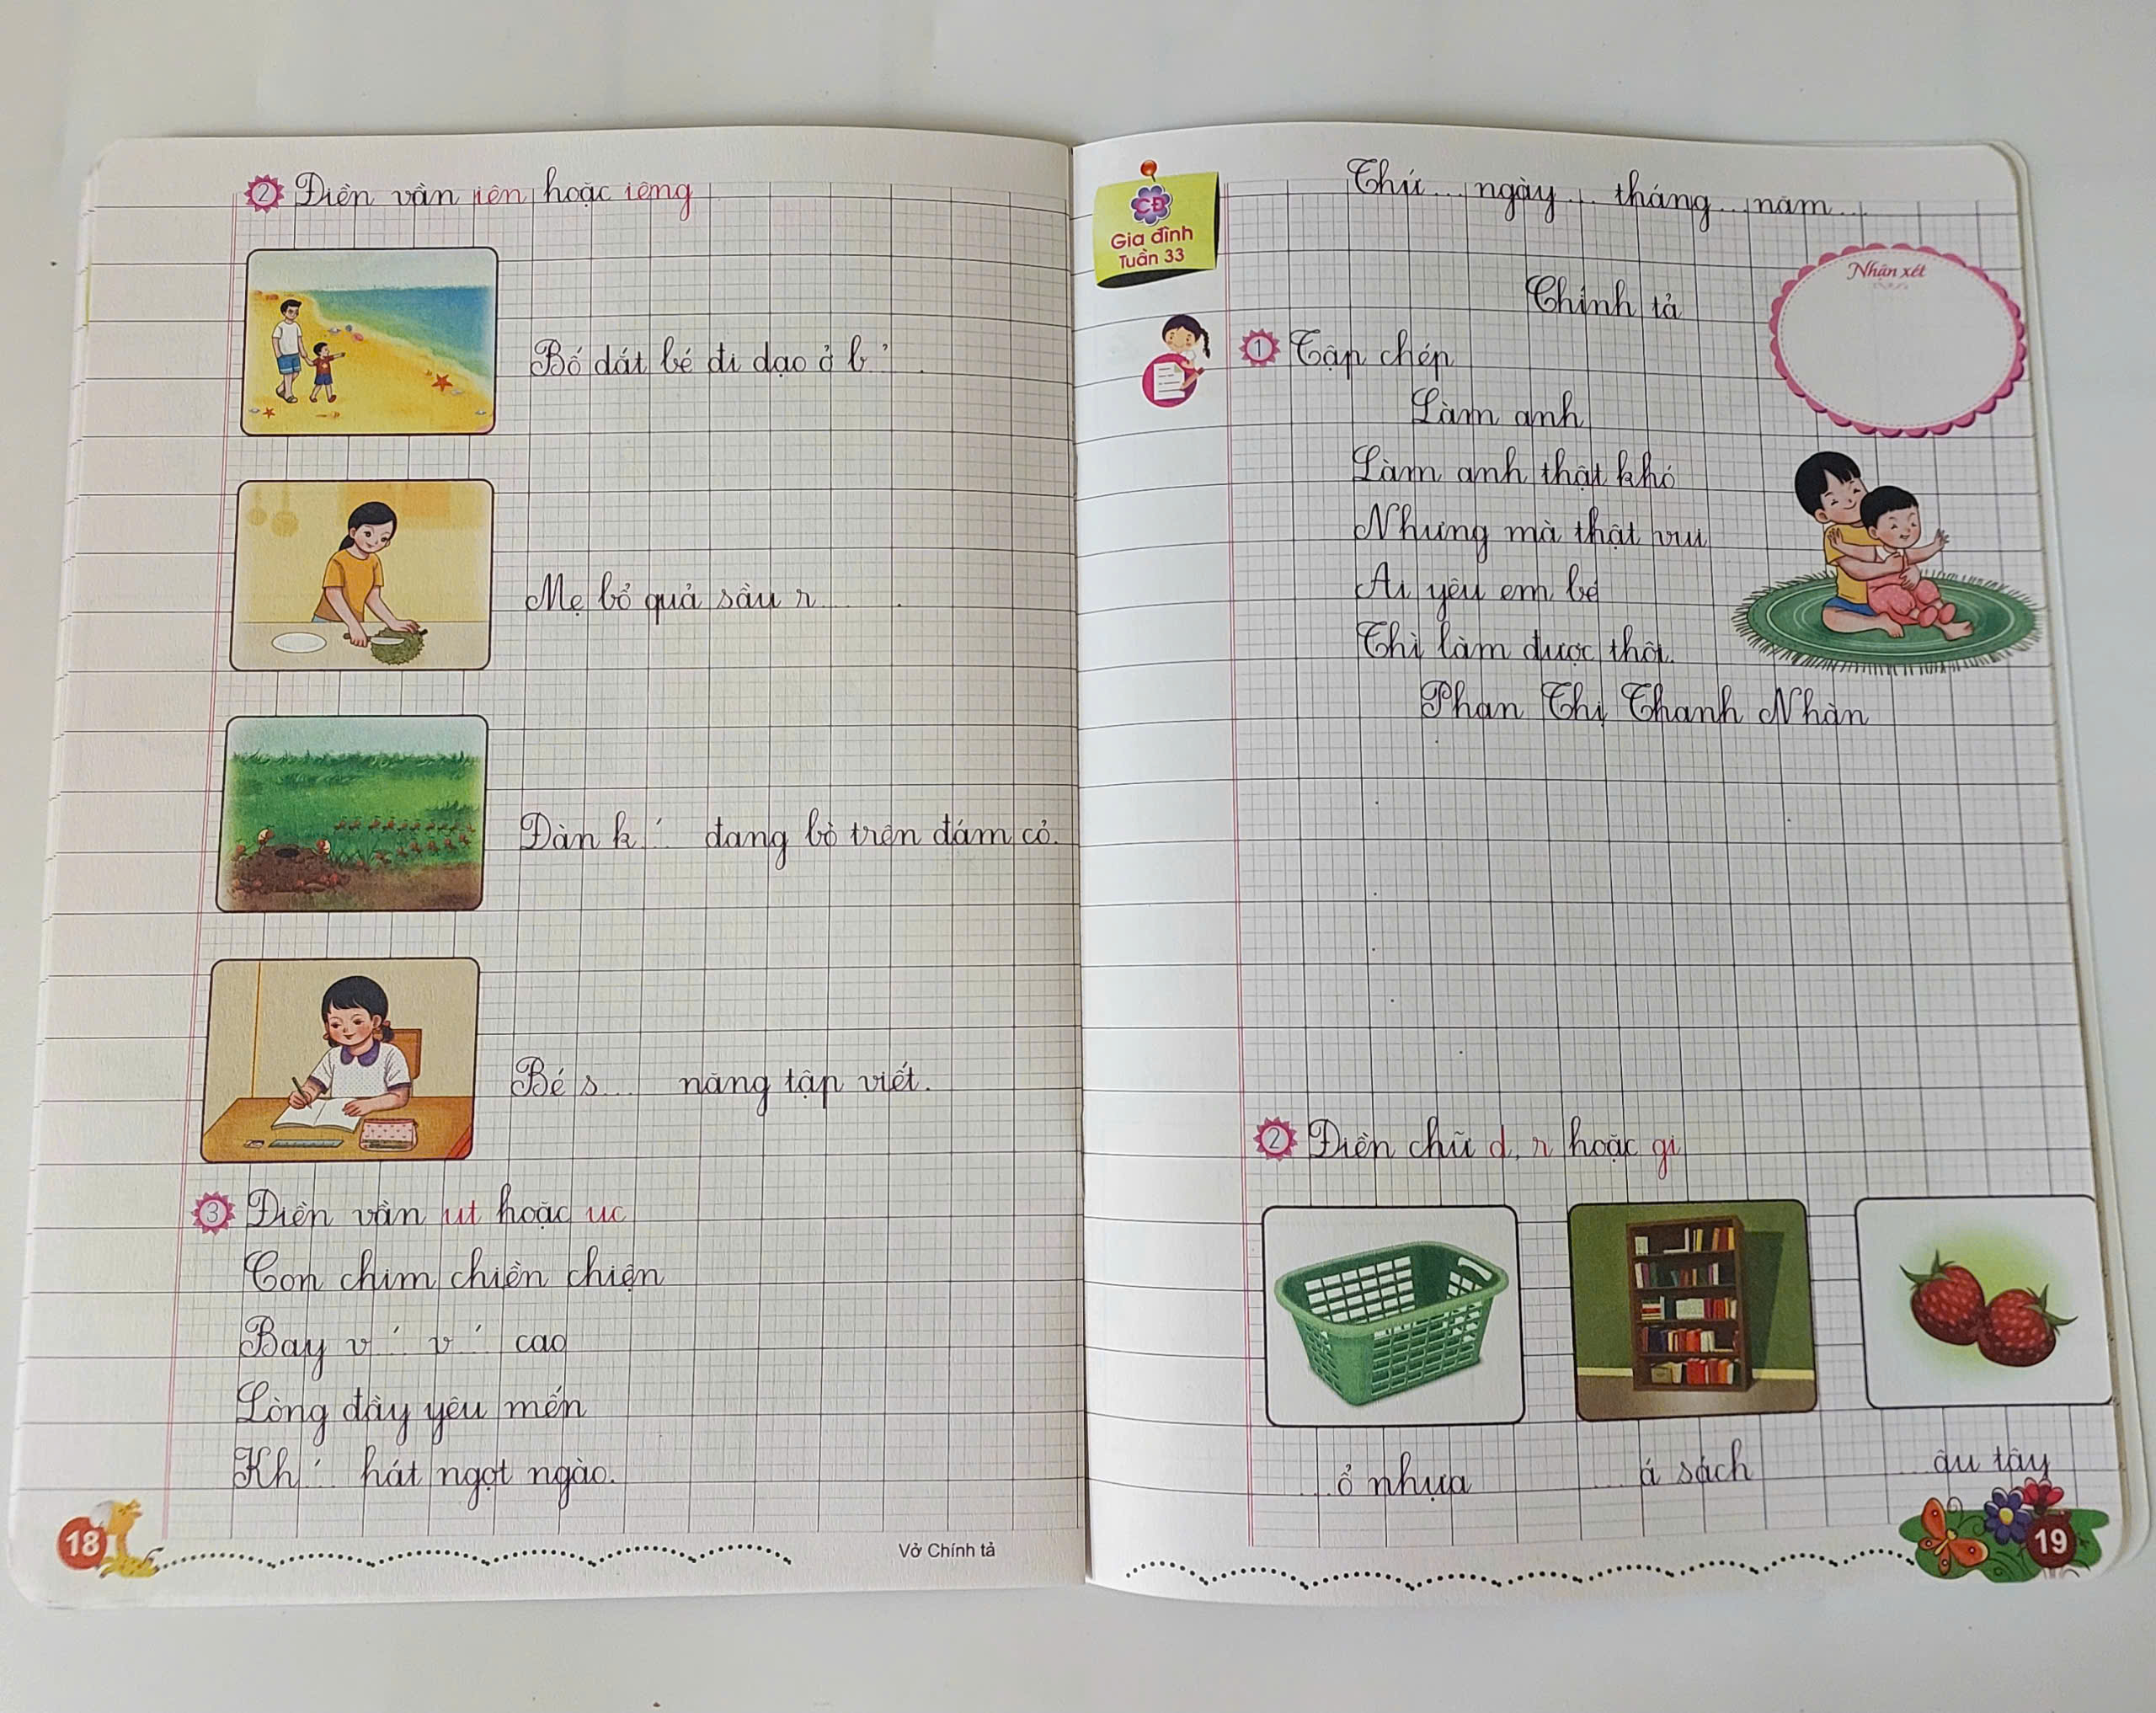 2 Điền vần iên hoặc iêng
Bố dắt bé đi dạo ở b...̉...
Mẹ bổ quả sầu r... .
Đàn k...́ đang bò trên đám cỏ.
Bé s... năng tập viết.
3 Điền vần ut hoặc uc
Con chim chiền chiện
Bay v...́ v...́ cao
Lòng đầy yêu mến
Kh...́ hát ngọt ngào.
18
Vở Chính tả
CĐ
Gia đình
Tuần 33
Thứ... ngày... tháng... năm...
Nhận xét
Chính tả
1 Tập chép
Làm anh
Làm anh thật khó
Nhưng mà thật vui
Ai yêu em bé
Thì làm được thôi.
Phan Thị Thanh Nhàn
2 Điền chữ d, r hoặc gi
...ổ nhựa ...á sách ...âu tây
19